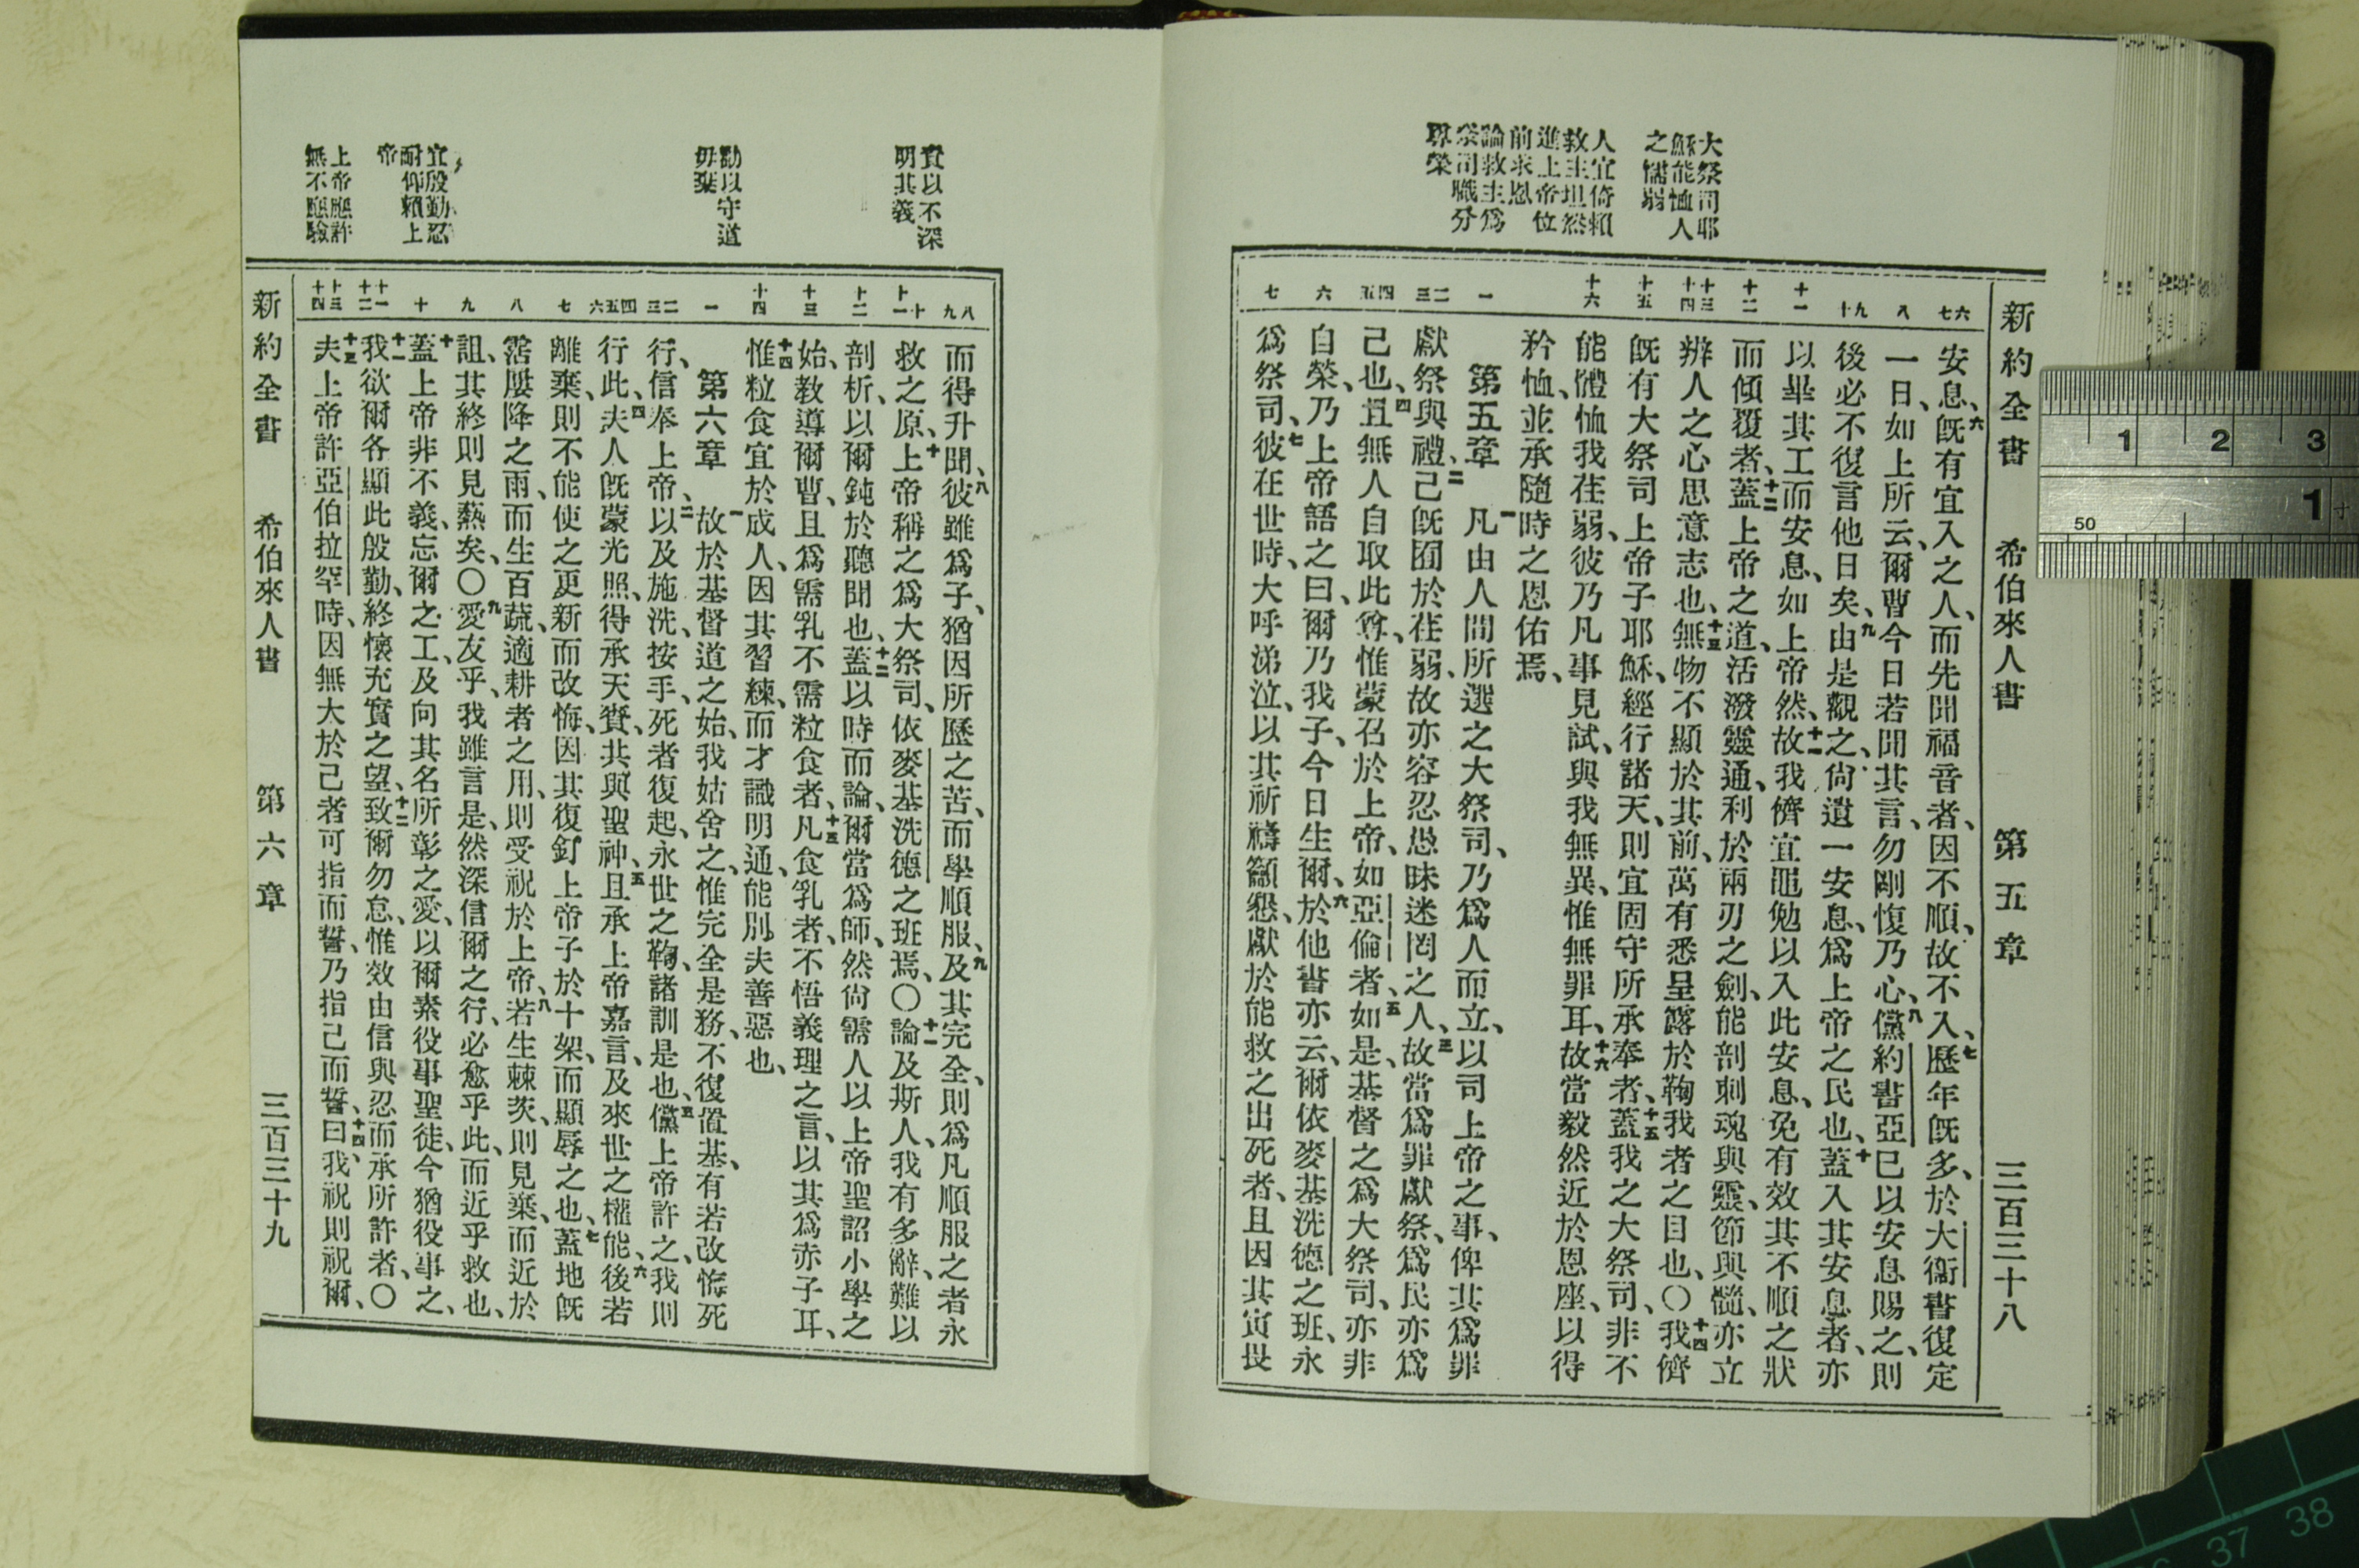 新約全書 希伯來人書 第五章 三百三十八
大祭司耶
穌能恤人
之懦弱
人宜倚賴
救主坦然
進上帝位
前求恩
論救主爲
祭司職分
尊榮
六七
八
九十
十一
十二
十三十四
十五
十六
一
二三
四五
六
七
安息、六既有宜入之人、而先聞福音者、因不順、故不入、七歷年既多、於大衞書復定
一日、如上所云、爾曹今日若聞其言、勿剛愎乃心、八儻約書亞已以安息賜之、則
後必不復言他日矣、九由是觀之、尙遺一安息、爲上帝之民也、十蓋入其安息者、亦
以畢其工而安息、如上帝然、十一故我儕宜黽勉以入此安息、免有效其不順之狀
而傾覆者、十二蓋上帝之道、活潑靈通、利於兩刃之劍、能剖刺魂與靈、節與髓、亦立
辨人之心思意志也、十三無物不顯於其前、萬有悉呈露於鞫我者之目也、〇十四我儕
既有大祭司上帝子耶穌、經行諸天、則宜固守所承奉者、十五蓋我之大祭司、非不
能體恤我荏弱、彼乃凡事見試、與我無異、惟無罪耳、十六故當毅然近於恩座、以得
矜恤、並承隨時之恩佑焉、
第五章 一凡由人間所選之大祭司、乃爲人而立、以司上帝之事、俾其爲罪
獻祭與禮、二己既囿於荏弱、故亦容忍愚昧迷罔之人、三故當爲罪獻祭、爲民亦爲
己也、四且無人自取此尊、惟蒙召於上帝、如亞倫者、五如是、基督之爲大祭司、亦非
自榮、乃上帝語之曰、爾乃我子、今日生爾、六於他書亦云、爾依麥基洗德之班、永
爲祭司、七彼在世時、大呼涕泣、以其祈禱籲懇、獻於能救之出死者、且因其寅畏
實以不深
明其義
勸以守道
毋棄
宜殷勤忍
耐仰賴上
帝
上帝應許
無不應驗
八九
十十一
十二
十三
十四
一
二三
四五六
七
八
九
十
十一十二
十三十四
而得升聞、八彼雖爲子、猶因所歷之苦、而學順服、九及其完全、則爲凡順服之者永
救之原、十上帝稱之爲大祭司、依麥基洗德之班焉、〇十一論及斯人、我有多辭、難以
剖析、以爾鈍於聽聞也、十二蓋以時而論、爾當爲師、然尙需人以上帝聖詔小學之
始、教導爾曹、且爲需乳不需粒食者、十三凡食乳者、不悟義理之言、以其爲赤子耳、
十四惟粒食宜於成人、因其習練、而才識明通、能別夫善惡也、
第六章 一故於基督道之始、我姑舍之、惟完全是務、不復置基、有若改悔死
行、信奉上帝、二以及施洗、按手、死者復起、永世之鞫、諸訓是也、三儻上帝許之、我則
行此、四夫人既蒙光照、得承天賚、共與聖神、五且承上帝嘉言、及來世之權能、六後若
離棄、則不能使之更新而改悔、因其復釘上帝子於十架、而顯辱之也、七蓋地既
霑屢降之雨、而生百蔬、適耕者之用、則受祝於上帝、八若生棘茨、則見棄、而近於
詛、其終則見爇矣、〇九愛友乎、我雖言是、然深信爾之行、必愈乎此、而近乎救也、
十蓋上帝非不義、忘爾之工、及向其名所彰之愛、以爾素役事聖徒、今猶役事之、
十一我欲爾各顯此殷勤、終懷充實之望、十二致爾勿怠、惟效由信與忍而承所許者、〇
十三夫上帝許亞伯拉罕時、因無大於己者可指而誓、乃指己而誓、十四曰、我祝則祝爾、
新約全書 希伯來人書 第六章 三百三十九
1 2 3
50
1寸
37 38